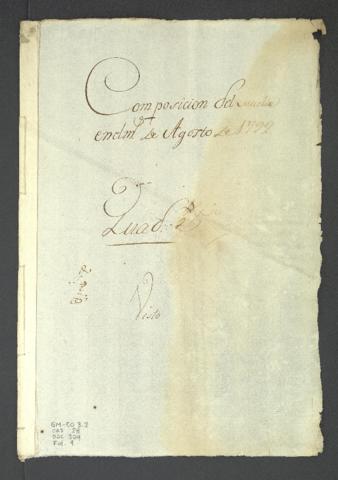 Composicion del
en el m.^s de Agosto de 1799
Quad.^o 2^o
Visto
GM-CO 3.2
CAJ 28
DOC 324
Fol. 9